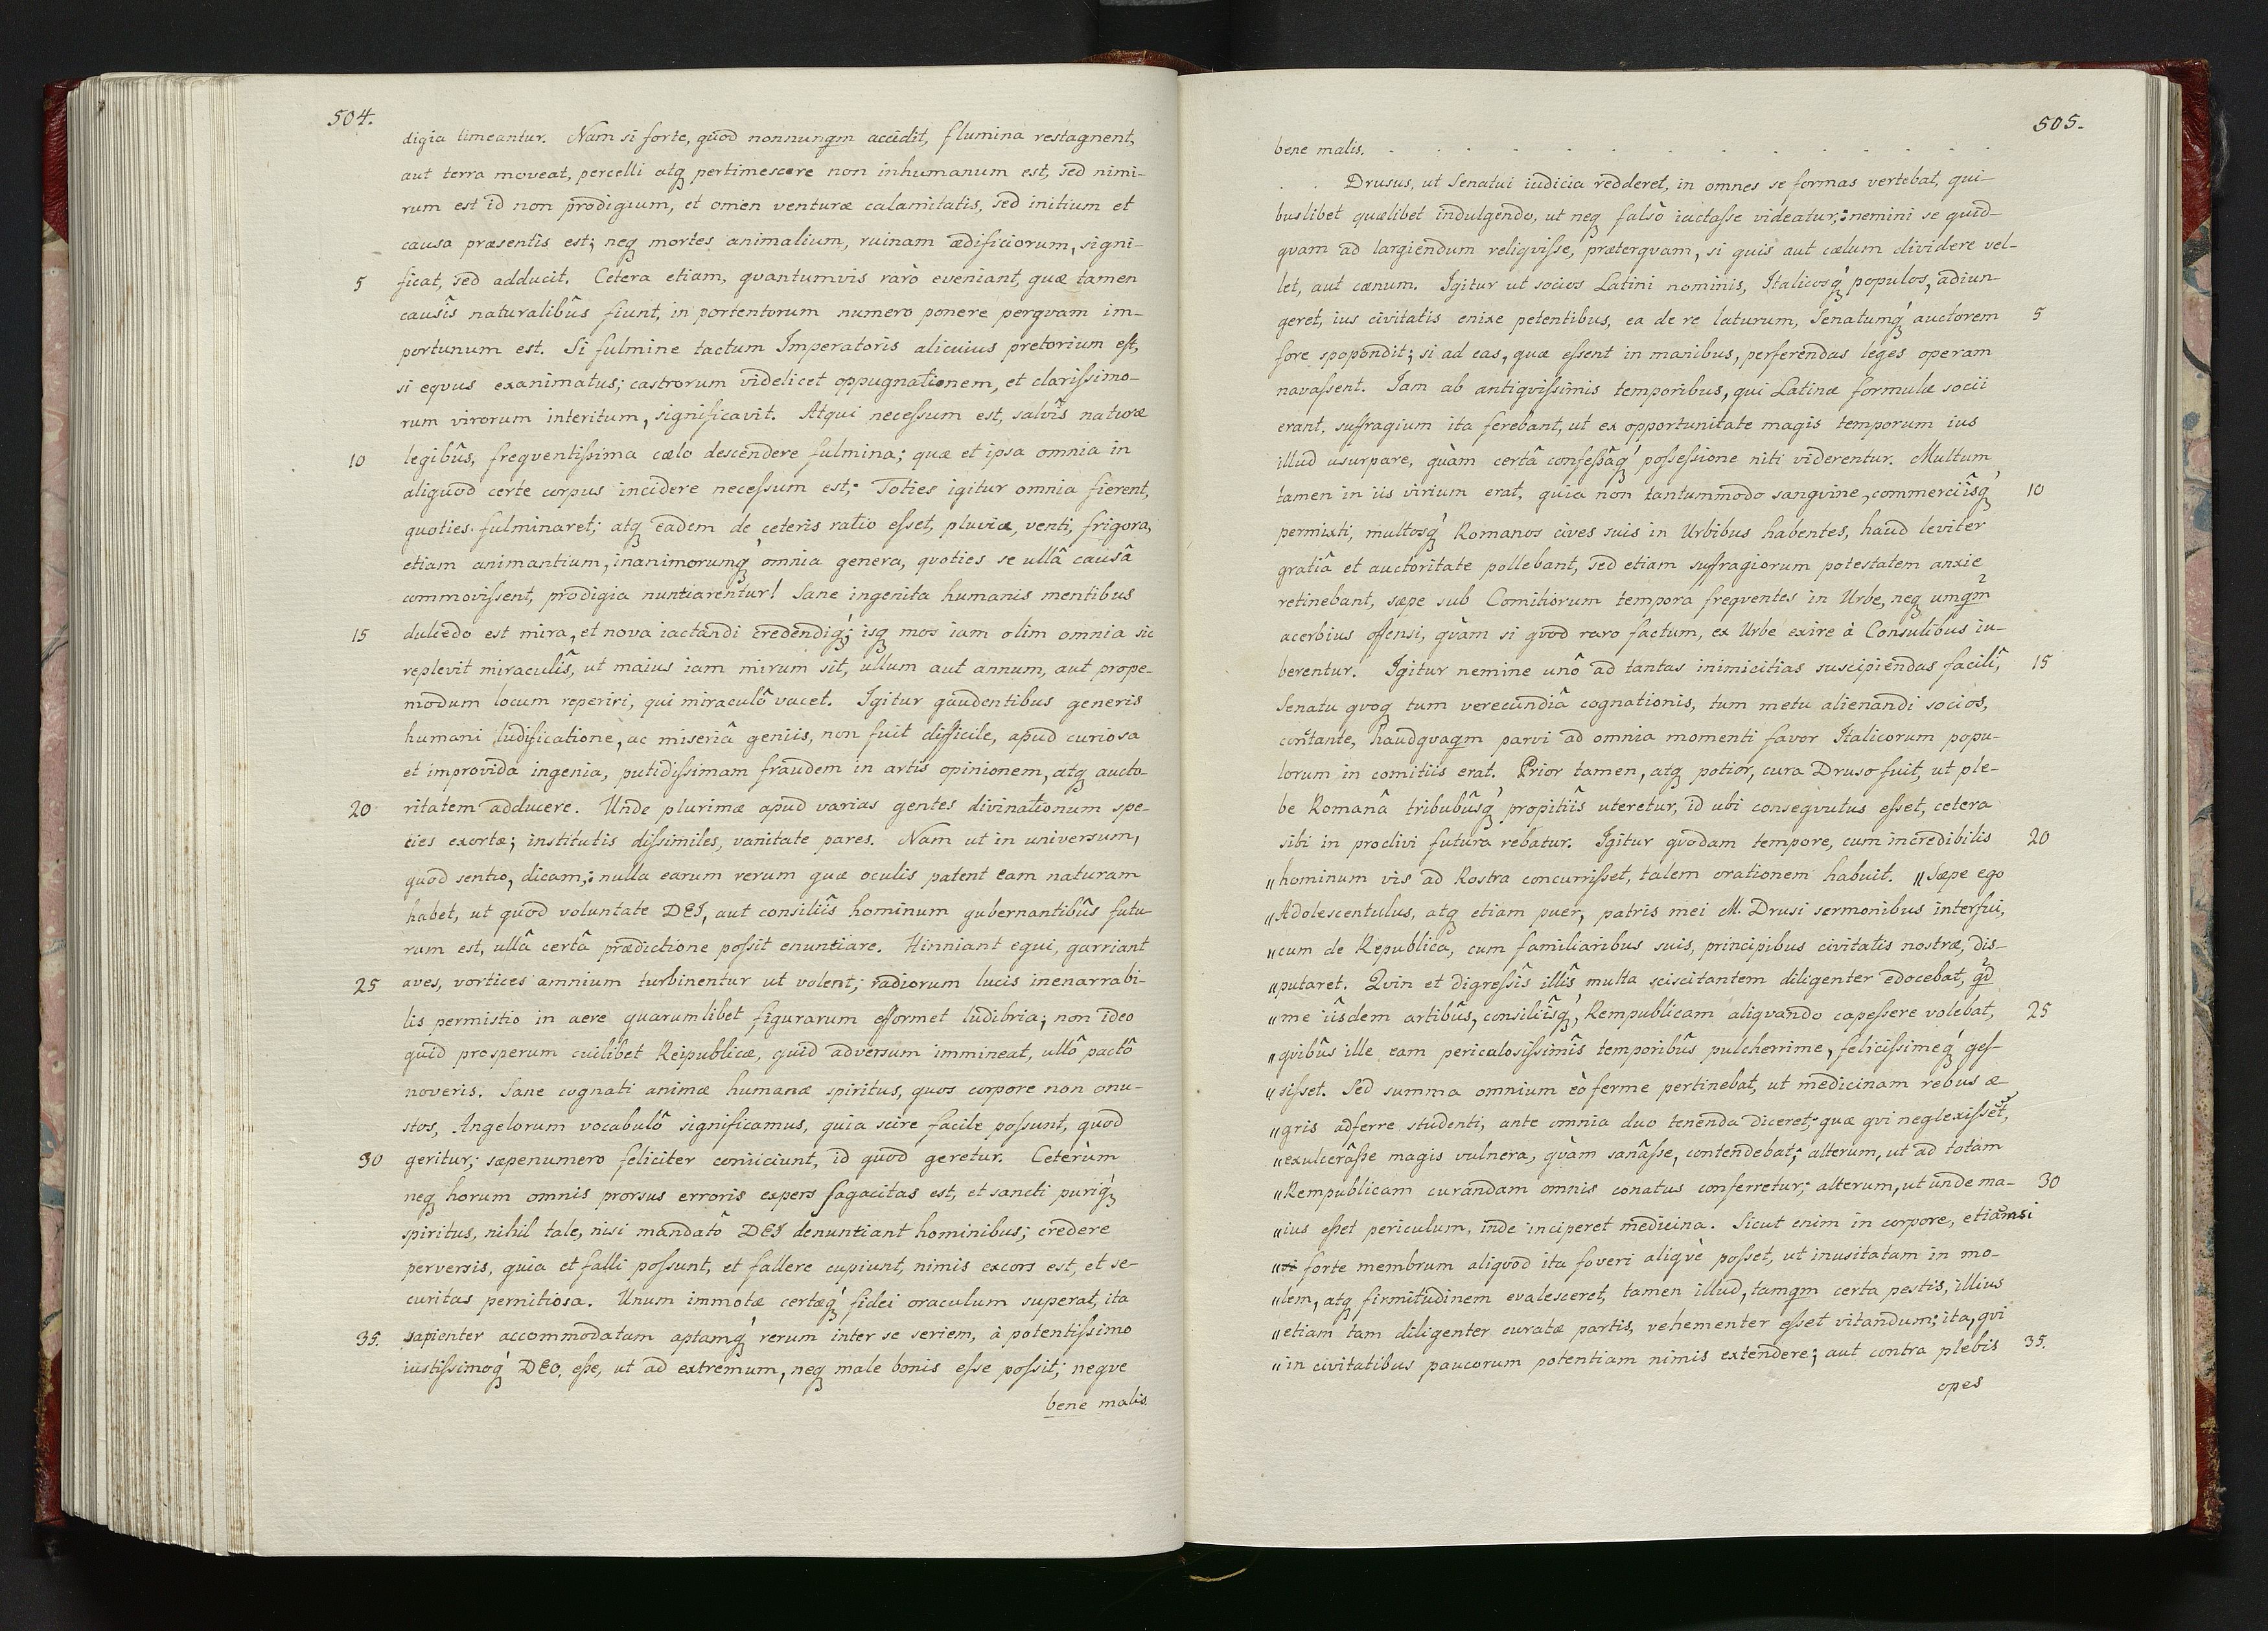 504.
digia timeantur. Nam si forte, quod nonnunqm accidit, flumina restagnent,
aut terra moveat, percelli atq pertimescere non inhumanum est, sed nimi-
rum est id non prodigium, et omen venturæ calamitatis, sed initium et
causa præsentis est; neq mortes animalium, ruinam ædificiorum, signi-
5 ficat, sed adducit. Cetera etiam, quantumvis rarò eveniant, quæ tamen
causîs naturalibûs fiunt, in portentorum numero ponere perquam im-
portunum est. Si fulmine tactum Imperatoris alicuius pretorium est,
si equus exanimatus; castrorum videlicet oppugnationem, et clarissimo-
rum virorum interitum, significavit. Atqui necessum est, salvîs naturæ
10 legibûs, frequentissima cælo descendere fulmina; quæ et ipsa omnia in
aliquod certe corpus incidere necessum est; Toties igitur omnia fierent,
quoties fulminaret; atq eadem de ceteris ratio esset, pluviæ, venti, frigora,
etiam animantium, inanimorumq omnia genera, quoties se ullâ causâ
commovissent, prodigia nuntiarentur! Sane ingenita humanis mentibus
15 dulcedo est mira, et nova iactandi credendiq; isq mos iam olim omnia sic
replevit miraculîs, ut maius iam mirum sit, ullum aut annum, aut prope-
modum locum reperiri, qui miraculô vacet. Igitur gaudentibus generis
humani ludificatione, ac miseriâ geniis, non fuit difficile, apud curiosa
et improvida ingenia, putidissimam fraudem in artis opinionem, atq aucto-
20 ritatem adducere. Unde plurimæ apud varias gentes divinationum spe-
cies exortæ; institutis dissimiles, vanitate pares. Nam ut in universum,
quod sentio, dicam,: nulla earum rerum quæ oculis patent eam naturam
habet, ut quod voluntate DEI, aut consiliîs hominum gubernantibûs futu-
rum est, ullâ certâ prædictione possit enuntiare. Hinniant equi, garriant
25 aves, vortices amnium turbinentur ut volent; radiorum lucis inenarrabi-
lis permistio in aere quarumlibet figurarum efformet ludibria; non ideo
quid prosperum cuilibet Reipublicæ, quid adversum immineat, ullô pactô
noveris. Sane cognati animæ humanæ spiritus, quos corpore non onu-
stos, Angelorum vocabulô significamus, quia scire facile possunt, quod
30 geritur; sæpenumero feliciter coniiciunt, id quod geretur. Ceterùm
neq horum omnis prorsus erroris expers sagacitas est, et sancti puriq
spiritus, nihil tale, nisi mandatô DEI denuntiant hominibus; credere
perversis, quia et falli possunt, et fallere cupiunt, nimis excors est, et se-
curitas pernitiosa. Unum immotæ certæq fidei oraculum superat, ita
35. sapienter accommodatam aptamq rerum inter se seriem, à potentissimo
iustissimoq DEO, esse, ut ad extremum, neq male bonis esse possit; neque
bene malis.
505.
bene malis. . . . . . . . . . . . . . . . . .
. . Drusus, ut Senatui iudicia redderet, in omnes se formas vertebat, qui-
buslibet quælibet indulgendo, ut neq falsò iactasse videatur,: nemini se quid-
quam ad largiendum reliquisse, præterquam, si quis aut cælum dividere vel-
let, aut cænum. Igitur ut socios Latini nominis, Italicosq populos, adiun-
geret, ius civitatis enixe petentibus, ea de re laturum, Senatumq auctorem 5
fore spopondit; si ad eas, quæ essent in manibus, perferendas leges operam
navassent. Iam ab antiquissimis temporibus, qui Latinæ formulæ socii
erant, suffragium ita ferebant, ut ex opportunitate magis temporum ius
illud usurpare, quàm certâ confessâq possessione niti viderentur. Multum
tamen in iis virium erat, quia non tantummodo sanguine, commerciîsq 10
permixti, multosq Romanos cives suis in Urbibus habentes, haud leviter
gratiâ et auctoritate pollebant, sed etiam suffragiorum potestatem anxie
retinebant, sæpe sub Comitiorum tempora frequentes in Urbe, neq umqm
acerbius offensi, quàm si quod raro factum, ex Urbe exire à Consulibus iu-
berentur. Igitur nemine unô ad tantas inimicitias suscipiendas facilî, 15
Senatu quoq tum verecundiâ cognationis, tum metu alienandi socios,
contante, haudquaqm parvi ad omnia momenti favor Italicorum popu-
lorum in comitiis erat. Prior tamen, atq potior, cura Druso fuit, ut ple-
be Romanâ tribubûsq propitiîs uteretur, id ubi consequutus esset, cetera
sibi in proclivi futura rebatur. Igitur quodam tempore, cum incredibilis 20
„hominum vis ad Rostra concurrisset, talem orationem habuit. „Sæpe ego
„Adolescentulus, atq etiam puer, patris mei M. Drusi sermonibus interfui,
„cum de Republica, cum familiaribus suis, principibus civitatis nostræ, dis-
„putaret. Quin et digressîs illîs multa sciscitantem diligenter edocebat, qd
„me iîsdem artibûs, consiliîsq, Rempublicam aliquando capessere volebat, 25
„quibûs ille eam periculosissimîs temporibûs pulcherrime, felicissimeq ges-
„sisset. Sed summa omnium eò ferme pertinebat, ut medicinam rebus æ-
„gris adferre studenti, ante omnia duo tenenda diceret; quæ qui neglexisset,
„exulcerâsse magis vulnera, quàm sanâsse, contendebat; alterum, ut ad totam
„Rempublicam curandam omnis conatus conferretur; alterum, ut unde ma- 30
„ius esset periculum, inde inciperet medicina. Sicut enim in corpore, etiamsi
„ forte membrum aliquod ita foveri aliquè posset, ut inusitatam in mo-
„lem, atq firmitudinem evalesceret, tamen illud, tamqm certa pestis, illius
„etiam tam diligenter curatæ partis, vehementer esset vitandum; ita, qui
„in civitatibus paucorum potentiam nimis extendere; aut contra plebis 35.
opes